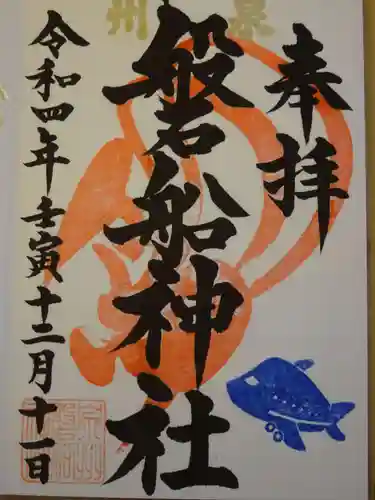 泉州
奉拝
磐船神社
令和四年壬寅十二月十一日